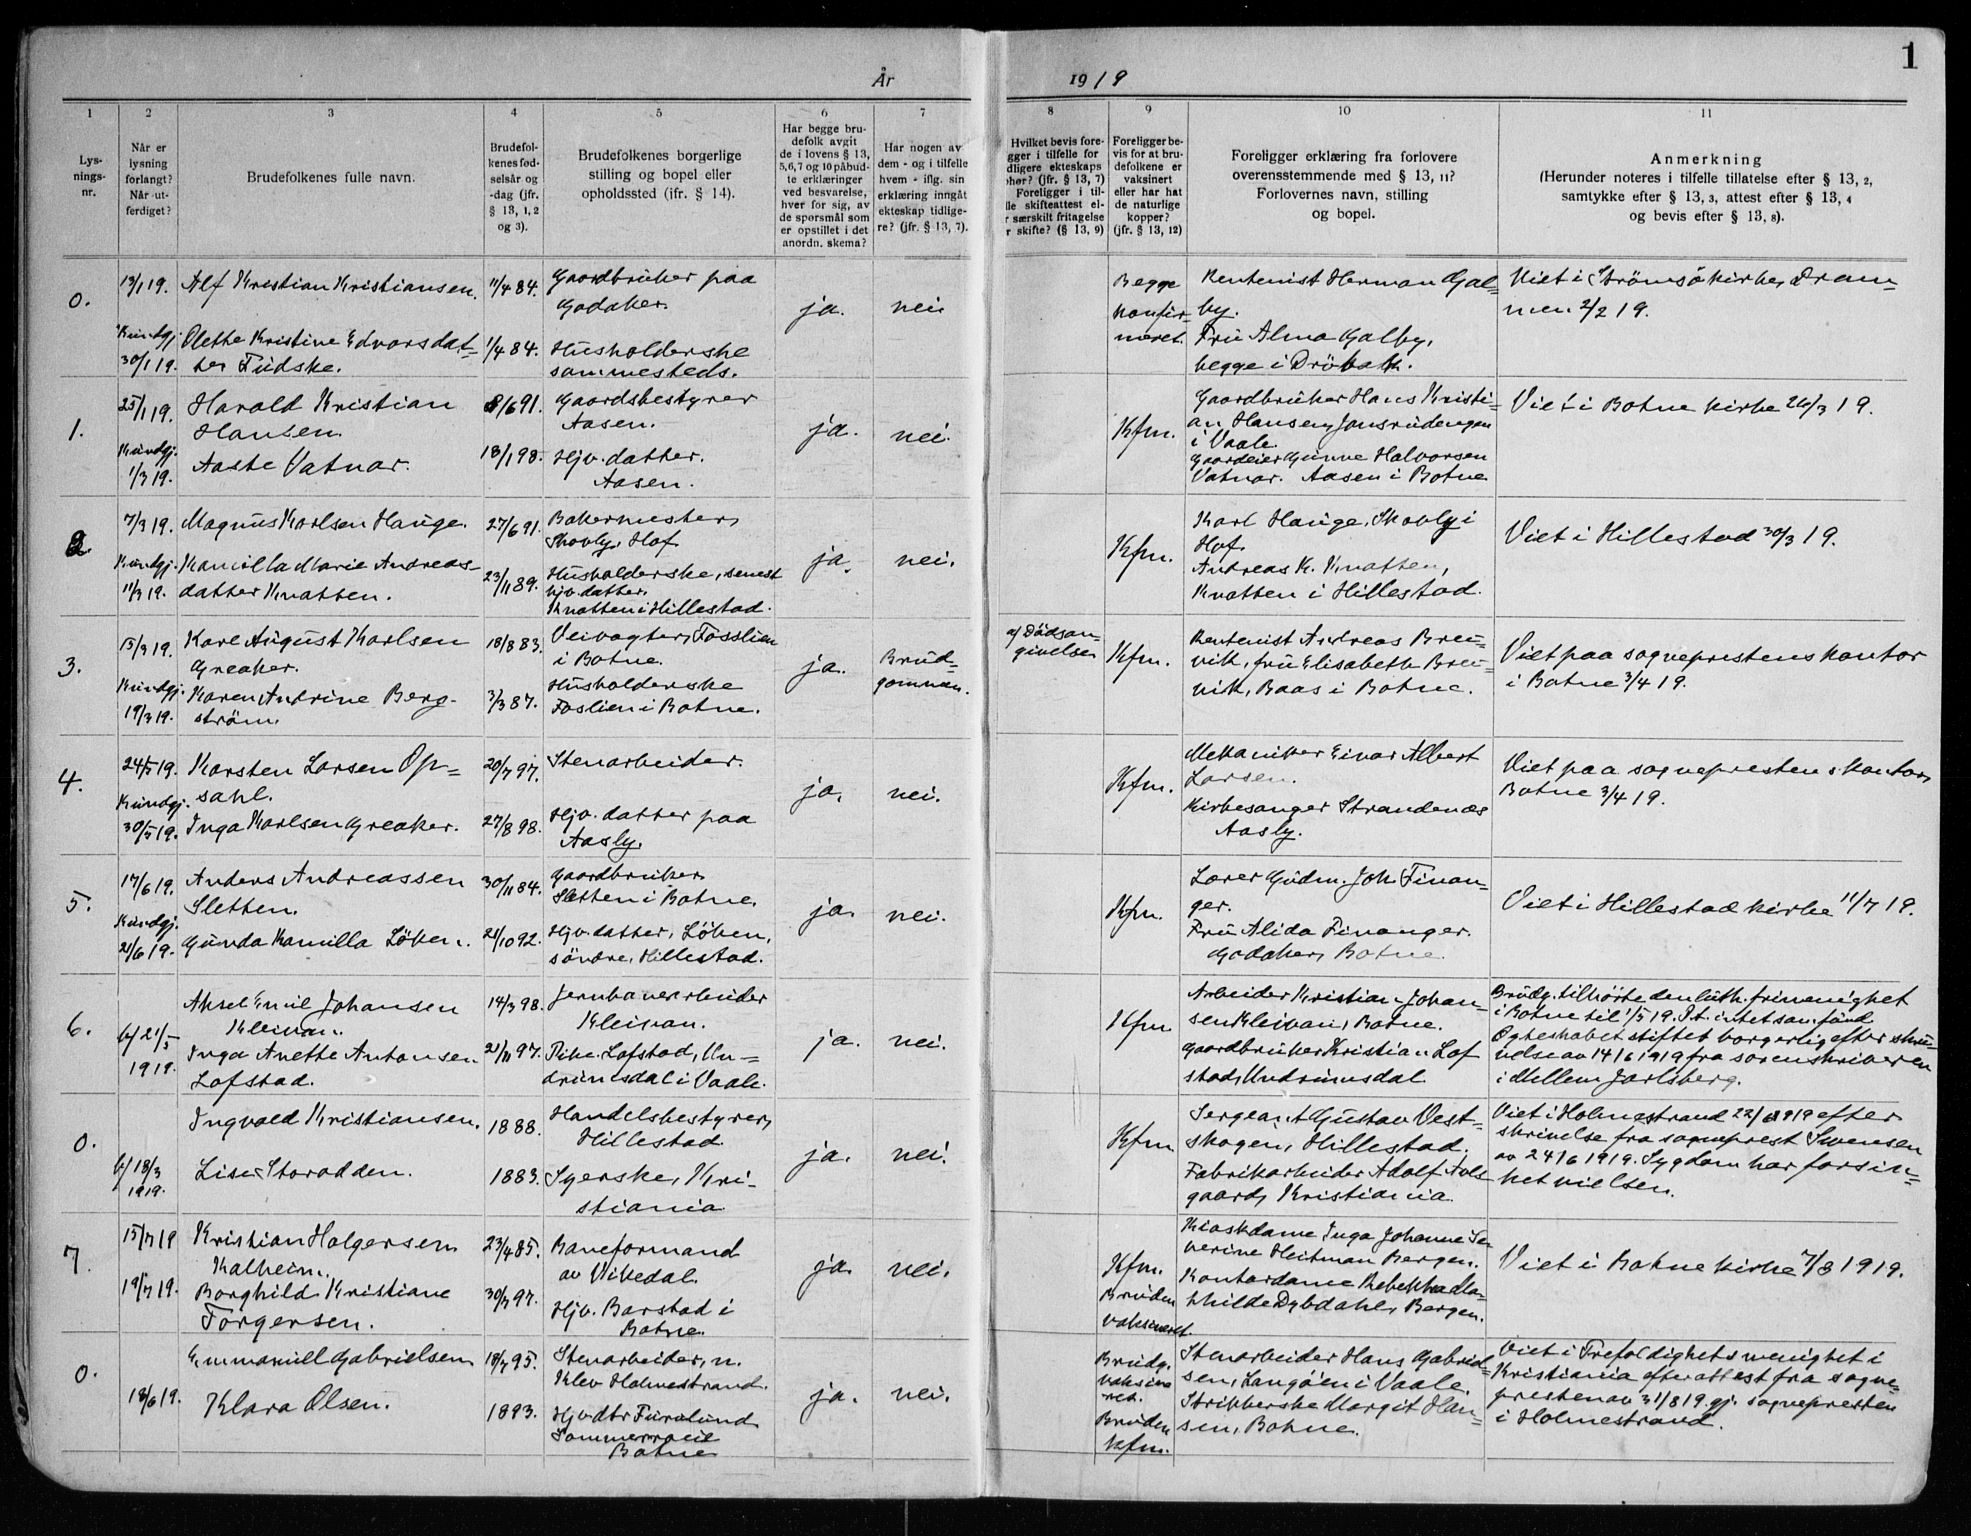 1
År 1919
1
2
3
4
5
6
7
8
9
10
11
Lys-
nings-
nr.
Når er
lysning
forlangt?
Når ut-
ferdiget?
Brudefolkenes fulle navn.
Brudefol-
kenes fød-
selsår og
-dag (jfr.
§ 13, 1, 2
og 3).
Brudefolkenes borgerlige
stilling og bopel eller
opholdssted (jfr. § 14).
Har begge bru-
defolk avgit
de i lovens § 13,
5,6,7 og 10 påbud-
te erklæringer
ved besvarelse,
hver for sig, av
de spørsmål som
er opstillet i det
anordn. skema?
Har nogen av
dem - og i tilfelle
hvem - iflg. sin
erklæring inngåt
ekteskap tidlige-
re? (jfr. § 13, 7).
Hvilket bevis fore-
gger i tilfelle for
dligere ekteskaps
phør? (jfr. § 13, 7)
Foreligger i til-
lle skifteattest el-
r særskilt fritagelse
r skifte? (§ 13, 9)
Foreligger be-
vis for at bru-
defolkene er
vaksinert
eller har hat
de naturlige
kopper?
(jfr. § 13, 12)
Foreligger erklæring fra forlovere
overensstemmende med § 13, 11?
Forlovernes navn, stilling
og bopel.
Anmerkning
(Herunder noteres i tilfelle tillatelse efter § 13, 2,
samtykke efter § 13, 3, attest efter § 13, 4
og bevis efter § 13, 8).
0.
13/1 19.
Kundgj.
30/1 19.
Alf Kristian Kristiansen.
Olette Kristine Edvarsdat-
ter Fudske.
11/4 84.
1/4 84.
Gaardbruker paa
Gadaker.
Husholderske
sammesteds.
ja.
nei.
Begge
konfir-
meret.
Rentenist Herman Gal-
by.
Fru Alma Galby,
begge i Drøbak.
Viet i Strømsø kirke, Dram-
men 2/2 19.
1.
25/1 19.
Kundgj.
1/3 19.
Harald Kristian
Hansen.
Aaste Vatnar.
8/6 91.
18/1 98.
Gaardsbestyrer
Aasen.
Hjv. datter.
Aasen.
ja.
nei.
Kfm.
Gaardbruker Hans Kristi-
an Hansen, Jonsrudengen
i Vaale.
Gaardeier Gunne Halvorsen
Vatnar. Aasen i Botne
Viet i Botne kirke 26/3 19.
2.
7/3 19.
Kundgj.
11/3 19.
Magnus Karlsen Hauge.
Kamilla Marie Andreas-
datter Knatten.
27/6 91.
23/11 89.
Bakermester,
Skovly, Hof
Husholderske, senest
hjv. datter.
Knatten i Hillestad.
ja.
nei.
Kfm.
Karl Hauge, Skovly i
Hof.
Andreas K. Knatten,
Knatten i Hillestad.
Viet i Hillestad 30/3 19.
3.
15/3 19.
Kundgj.
19/3 19.
Karl August Karlsen
Greaker.
Karen Andrine Berg-
strøm.
18/8 83.
3/3 87.
Veivogter, Fosslien
i Botne.
Husholderske
Foslien i Botne.
ja.
Brud-
gommen.
a) Dødsan-
givelse
Kfm.
Rentenist Andreas Breu-
vik, fru Elisabeth Breu-
vik, Baas i Botne.
Viet paa sogneprestens kontor
i Botne 3/4 19.
4.
24/3 19.
Kundgj.
30/3 19.
Karsten Larsen Op-
sahl.
Inga Karlsen Greaker.
20/7 97.
27/8 98.
Stenarbeider.
Hjv. datter paa
Aasly.
ja.
nei.
Kfm.
Mekaniker Einar Albert
Larsen.
Kirkesanger Strandenæs
Aasly.
Viet paa sogneprestens kontor,
Botne 3/4 19.
5.
17/6 19.
Kundgj.
21/6 19.
Anders Andreassen
Sletten.
Gunda Kamilla Løken.
30/11 84.
21/10 92.
Gaardbruker
Sletten i Botne.
Hjv. datter, Løken,
søndre, Hillestad.
ja.
nei.
Kfm.
Lærer Gudm. Joh. Finan-
ger.
Fru Alida Finanger.
Gadaker, Botne.
Viet i Hillestad kirke 11/7 19.
6.
bf 21/5
1919.
Aksel Emil Johansen
Kleivan.
Inga Anette Antonsen
Lofstad.
14/3 98.
21/11 97.
Jernbanearbeider
Kleivan.
Pike. Lofstad, Un-
drumsdal i Vaale.
ja.
nei.
Kfm.
Arbeider Kristian Johan-
sen Kleivan, Botne.
Gaardbruker Kristian Lof
stad, Undrumsdal.
Brudg. tilhørte den luth. frimenighet
i Botne til 1/5 19. P.t. intet samfund
Egteskabet stiftet borgerlig efter skri-
velse av 14/6 1919 fra sorenskriveren
i Mellem Jarlsberg.
0.
bf 18/3
1919.
Ingvald Kristiansen.
Lise Storødden.
1888.
1883.
Handelsbestyrer,
Hillestad.
Syerske, Kri-
stiania
ja.
nei.
Kfm.
Sergeant Gustav Vest-
skogen, Hillestad.
Fabrikarbeider Adolf
gaard, Kristiania.
Viet i Holmestrand 22/6 1919 efter
skrivelse fra sogneprest Svensen
av 24/6 1919. Sygdom har forsin-
ket vielsen.
7.
15/7 19
19/7 19.
Kristian Holgersen
Kalheim.
Borghild Kristiane
Torgersen.
23/4 85.
30/7 97.
Baneformand
av Vikedal.
Hjv. Barstad i
Botne.
ja.
nei.
Kfm.
Bruden
vaksineret.
Kioskdame Inga Johanne Se-
verine Heitman Bergen.
Kontordame Rebekka Ma-
thilde Dybdahl, Bergen.
Viet i Botne kirke 7/8 1919.
0.
18/6 19.
Emmanuell Gabrielsen
Klara Olsen.
18/7 95.
1893.
Stenarbeider, n.
Klev Holmestrand.
Hjv dtr Furulund
Sommerroeie
Botne
ja.
nei.
Brudg.
vaksine
ret.
Bruden
kfm.
Stenarbeider Hans Gabriel-
sen, Langøen i Vaale.
Strikkerske Margit Han-
sen, Botne.
Viet i Trefoldighets menighet i
Kristiania efter attest fra sogne-
presten av 31/8 19. gj. sognepresten
i Holmestrand.